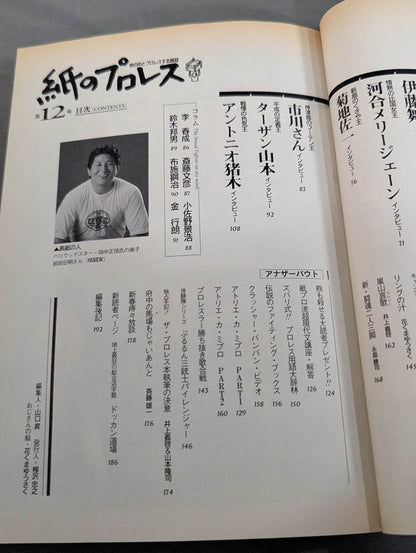 世の中とプロレスする雑誌
紙のプロレス
第12号 目次 (CONTENTS)
▲表紙の人
ハリウッドスター・田中正悟氏の弟子
前田日明さん(格闘家)
伊藤
情熱の伝国女王
河合メリージェーン
インタビュー
71
新鋭のくさや王
菊地佐
インタビュー
76
市川さん
インタビュー
83
平成の正義王
ターザン山本
インタビュー
92
戦慄の色気王
アントニオ猪木
インタビュー
108
コラム
李 春成 86
斎藤文彦 87
小佐野景浩 88
鈴木邦男 89
布施鋼治 90
金 行朗 91
リングの汁 花くまゆうさく 145
嵐山哀歌 井上義啓 162
新・闘魂二人三脚 永島勝司 168
アナザーバウト
熊も殺せる大読者プレゼント!! 124
紙プロ流超現代文講座・解答 126
ズバリ式!! プロレス用語大辞林 150
伝説のファイティング・ブックス 156
クラッシャー・バンバン・ビデオ 158
アトリエ・カ・ミプロ PART1 129
アトリエ・カ・ミプロ PART2 160
プロレスラー勝ち抜き歌合戦 143
体験隊シリーズ ぶるるん三銃士バイレンジャー 146
独占手記/ザ・プロレス本執筆の決意 井上義啓&山本隆司 174
府中の馬場もじゃいあんと 斉藤雄一 176
新春痔々放談 178
新読者ページ 地上最狂の総合活字塾 ドッカン道場 186
編集後記 192
編集人・山口昇 発行人・柳沢忠之
おじさんの絵・花くまゆうさく